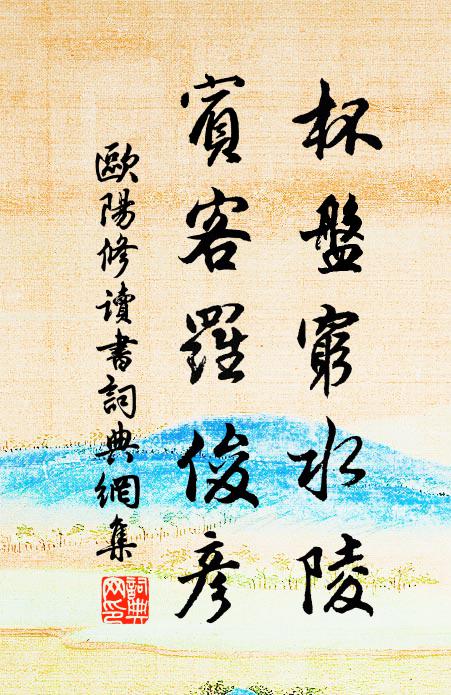 杯盤窮水陵
賓客羅俊彥
歐陽修讀書詞典網集
詞典